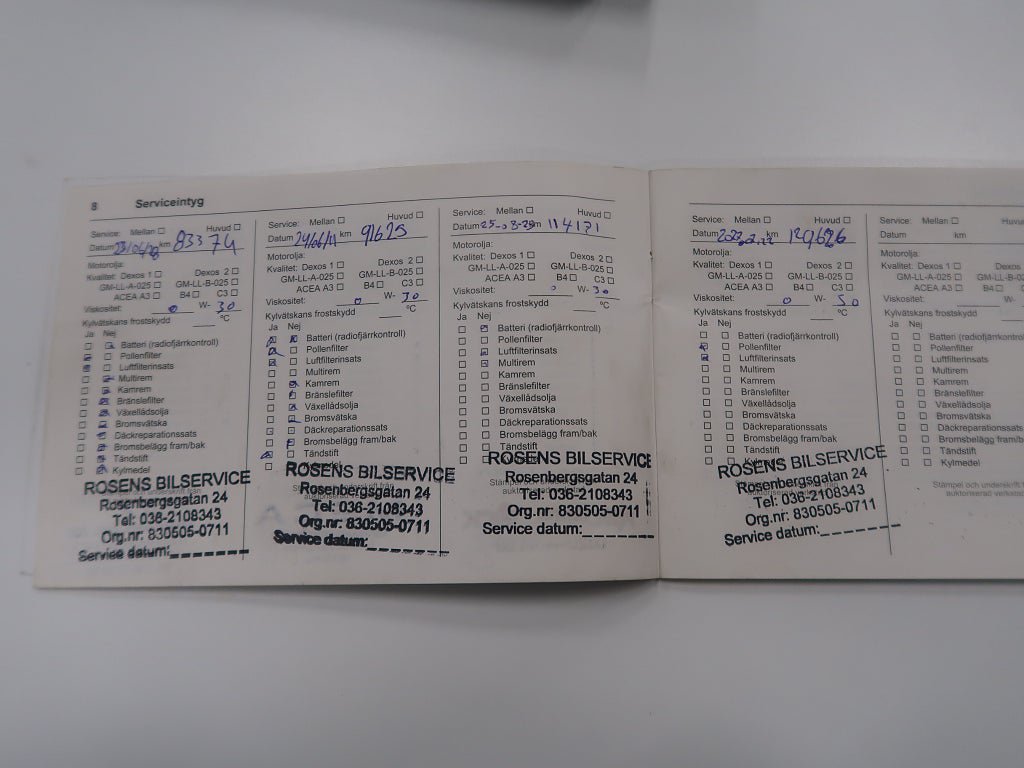 8 Serviceintyg
Service: Mellan ☐ Huvud ☐
Datum km 83374
Motorolja:
Kvalitet: Dexos 1 ☐ Dexos 2 ☐
GM-LL-A-025 ☐ GM-LL-B-025 ☐
ACEA A3 ☐ B4 ☐ C3 ☐
Viskositet: 0 W- 30
Kylvätskans frostskydd ___ °C
Ja Nej
Batteri (radiofjärrkontroll)
Pollenfilter
Luftfilterinsats
Multirem
Kamrem
Bränslefilter
Växellådsolja
Bromsvätska
Däckreparationssats
Bromsbelägg fram/bak
Tändstift
Kylmedel
ROSENS BILSERVICE
Rosenbergsgatan 24
Tel: 036-2108343
Org.nr: 830505-0711
Service datum:
Service: Mellan ☐ Huvud ☐
Datum 24/06/11 km 91625
Motorolja:
Kvalitet: Dexos 1 ☐ Dexos 2 ☐
GM-LL-A-025 ☐ GM-LL-B-025 ☐
ACEA A3 ☐ B4 ☐ C3 ☐
Viskositet: 0 W- 30
Kylvätskans frostskydd ___ °C
Ja Nej
Batteri (radiofjärrkontroll)
Pollenfilter
Luftfilterinsats
Multirem
Kamrem
Bränslefilter
Växellådsolja
Bromsvätska
Däckreparationssats
Bromsbelägg fram/bak
Tändstift
ROSENS BILSERVICE
Rosenbergsgatan 24
Tel: 036-2108343
Org.nr: 830505-0711
Service datum:
Service: Mellan ☐ Huvud ☐
Datum 25-03-29 km 114171
Motorolja:
Kvalitet: Dexos 1 ☐ Dexos 2 ☐
GM-LL-A-025 ☐ GM-LL-B-025 ☐
ACEA A3 ☐ B4 ☐ C3 ☐
Viskositet: 0 W- 30
Kylvätskans frostskydd ___ °C
Ja Nej
Batteri (radiofjärrkontroll)
Pollenfilter
Luftfilterinsats
Multirem
Kamrem
Bränslefilter
Växellådsolja
Bromsvätska
Däckreparationssats
Bromsbelägg fram/bak
Tändstift
ROSENS BILSERVICE
Rosenbergsgatan 24
Tel: 036-2108343
Org.nr: 830505-0711
Service datum:
Service: Mellan ☐ Huvud ☐
Datum km 129626
Motorolja:
Kvalitet: Dexos 1 ☐ Dexos 2 ☐
GM-LL-A-025 ☐ GM-LL-B-025 ☐
ACEA A3 ☐ B4 ☐ C3 ☐
Viskositet: 0 W- 30
Kylvätskans frostskydd ___ °C
Ja Nej
Batteri (radiofjärrkontroll)
Pollenfilter
Luftfilterinsats
Multirem
Kamrem
Bränslefilter
Växellådsolja
Bromsvätska
Däckreparationssats
Bromsbelägg fram/bak
Tändstift
Kylmedel
ROSENS BILSERVICE
Rosenbergsgatan 24
Tel: 036-2108343
Org.nr: 830505-0711
Service datum:
Service: Mellan ☐
Datum km
Motorolja:
Kvalitet: Dexos 1 ☐
GM-LL-A-025 ☐
ACEA A3 ☐
Viskositet:
Kylvätskans frostskydd
Ja Nej
Batteri (radiofjärrkontroll
Pollenfilter
Luftfilterinsats
Multirem
Kamrem
Bränslefilter
Växellådsolja
Bromsvätska
Däckreparationssats
Bromsbelägg fram/b
Tändstift
Kylmedel
Stämpel och underskrift
auktoriserad verksta